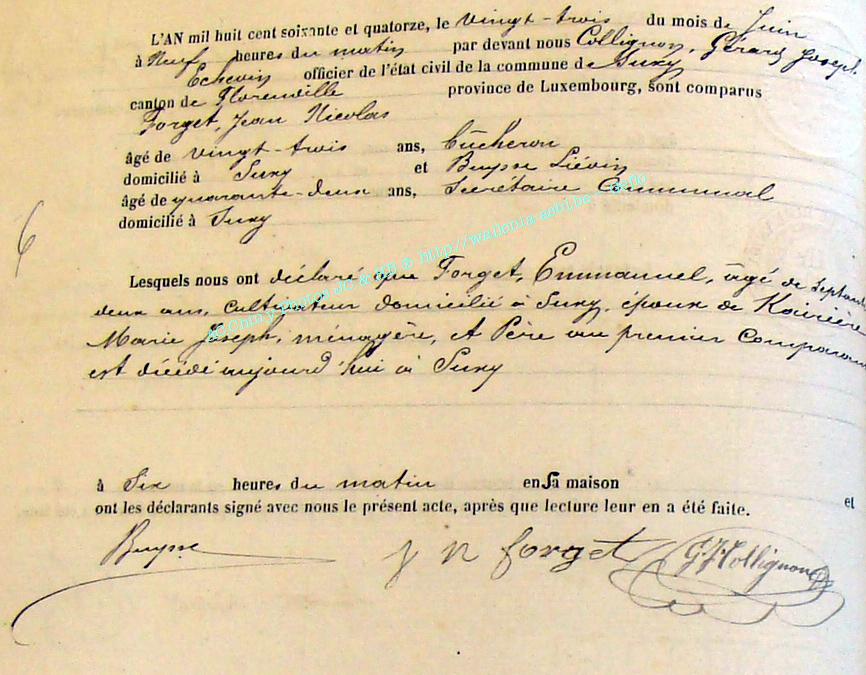 L'AN mil huit cent soixante et quatorze, le vingt-trois du mois de Juin
à Neuf heures du matin par devant nous Collignon, Gérard Joseph
Echevin officier de l'état civil de la commune de Suxy
canton de Florenville province de Luxembourg, sont comparus
Forget, Jean Nicolas
âgé de vingt-trois ans, bûcheron
domicilié à Suxy et Buysse Liévin
âgé de quarante-deux ans, Secrétaire Communal
domicilié à Suxy
6
Lesquels nous ont déclaré que Forget, Emmanuel, âgé de septante
deux ans, cultivateur domicilié à Suxy, époux de
Marie Joseph, ménagère, et Père au premier Comparant
est décédé aujourd'hui à Suxy
à Six heures du matin en sa maison
et
ont les déclarants signé avec nous le présent acte, après que lecture leur en a été faite.
Buysse J N forget G J Collignon
http://wallonia-asbl.be